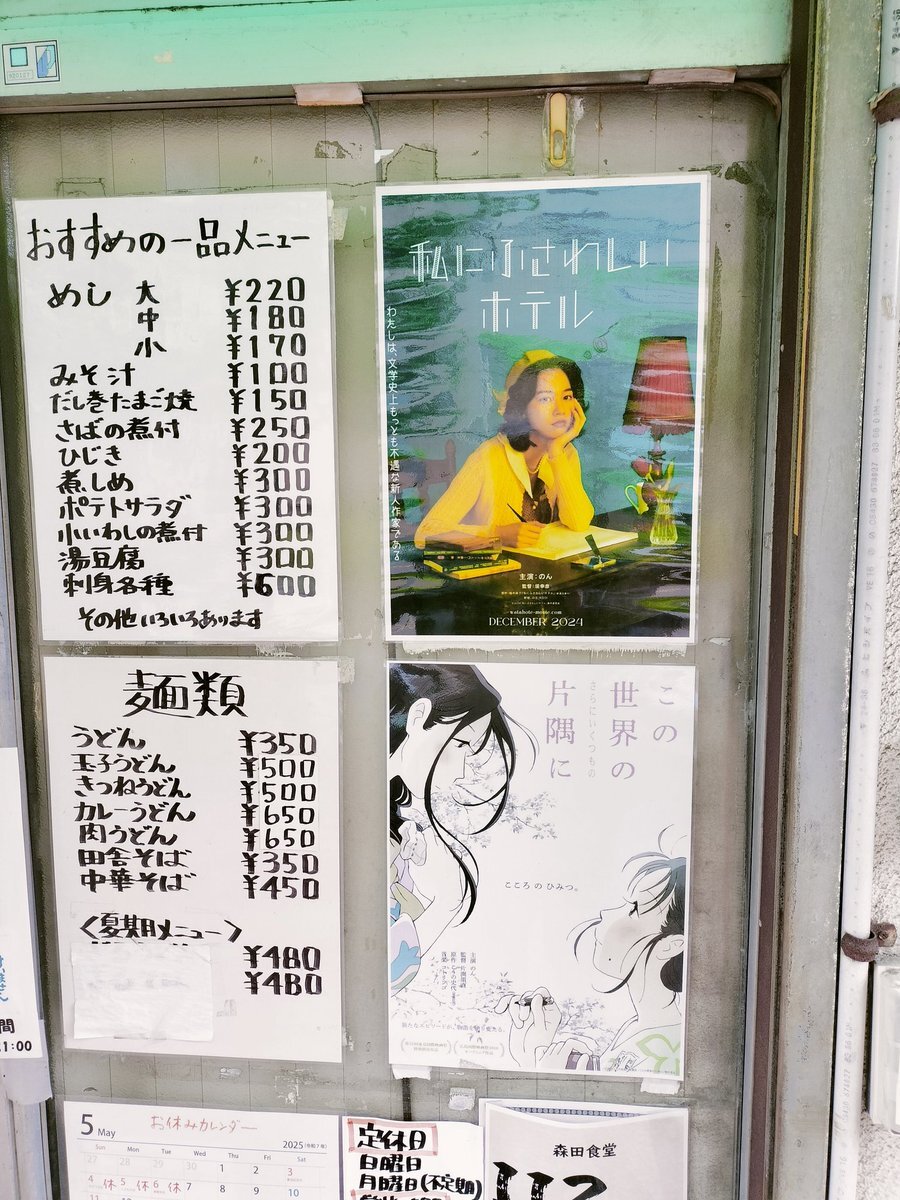 おすすめの一品メニュー
めし 大 ¥220
中 ¥180
小 ¥170
みそ汁 ¥100
だし巻たまご焼 ¥150
さばの煮付 ¥250
ひじき ¥200
煮しめ ¥300
ポテトサラダ ¥300
小いわしの煮付 ¥300
湯豆腐 ¥300
刺身各種 ¥600
その他いろいろあります
麺類
うどん ¥350
玉子うどん ¥500
きつねうどん ¥500
カレーうどん ¥650
肉うどん ¥650
田舎そば ¥350
中華そば ¥450
<夏期メニュー>
¥480
¥480
私にふさわしい
ホテル
わたしは、文学史上もっとも不遇な新人作家である
主演:のん
監督:堤幸彦
watahote-movie.com
DECEMBER 2024
この
世界の
さらにいくつもの
片隅に
こころのひみつ。
主演 のん
監督 片渕須直
間
1:00
5 May
お休みカレンダー
2025 (令和7年)
Sun Mon Tue Wed Thu Fri Sat
27 28 29 30 1 2 3
4 休 5 休 6 休 7 8 9 10
定休日
日曜日
月曜日(不定期)
森田食堂